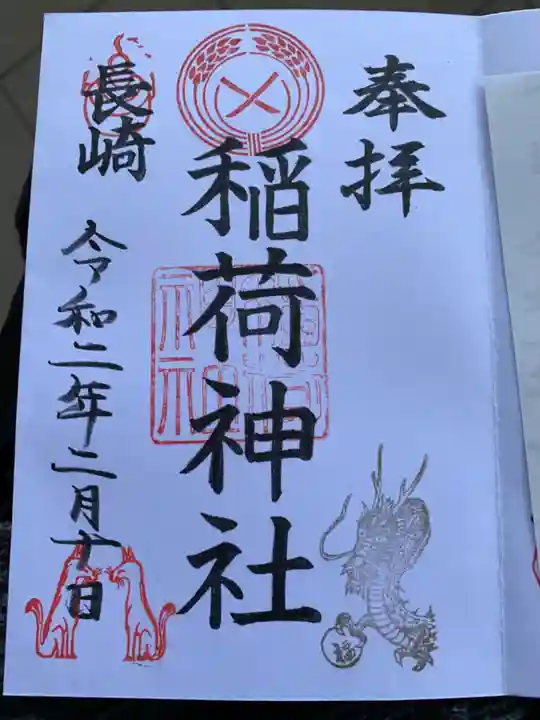 奉拝
稲荷神社
長崎
令和二年二月十日